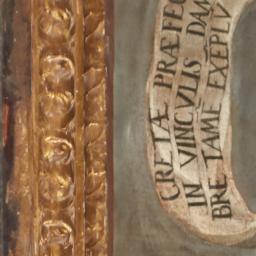 CRETÆ PRÆFEC
IN VINCVLIS DAM
BRE TAMĒ EXEPLV